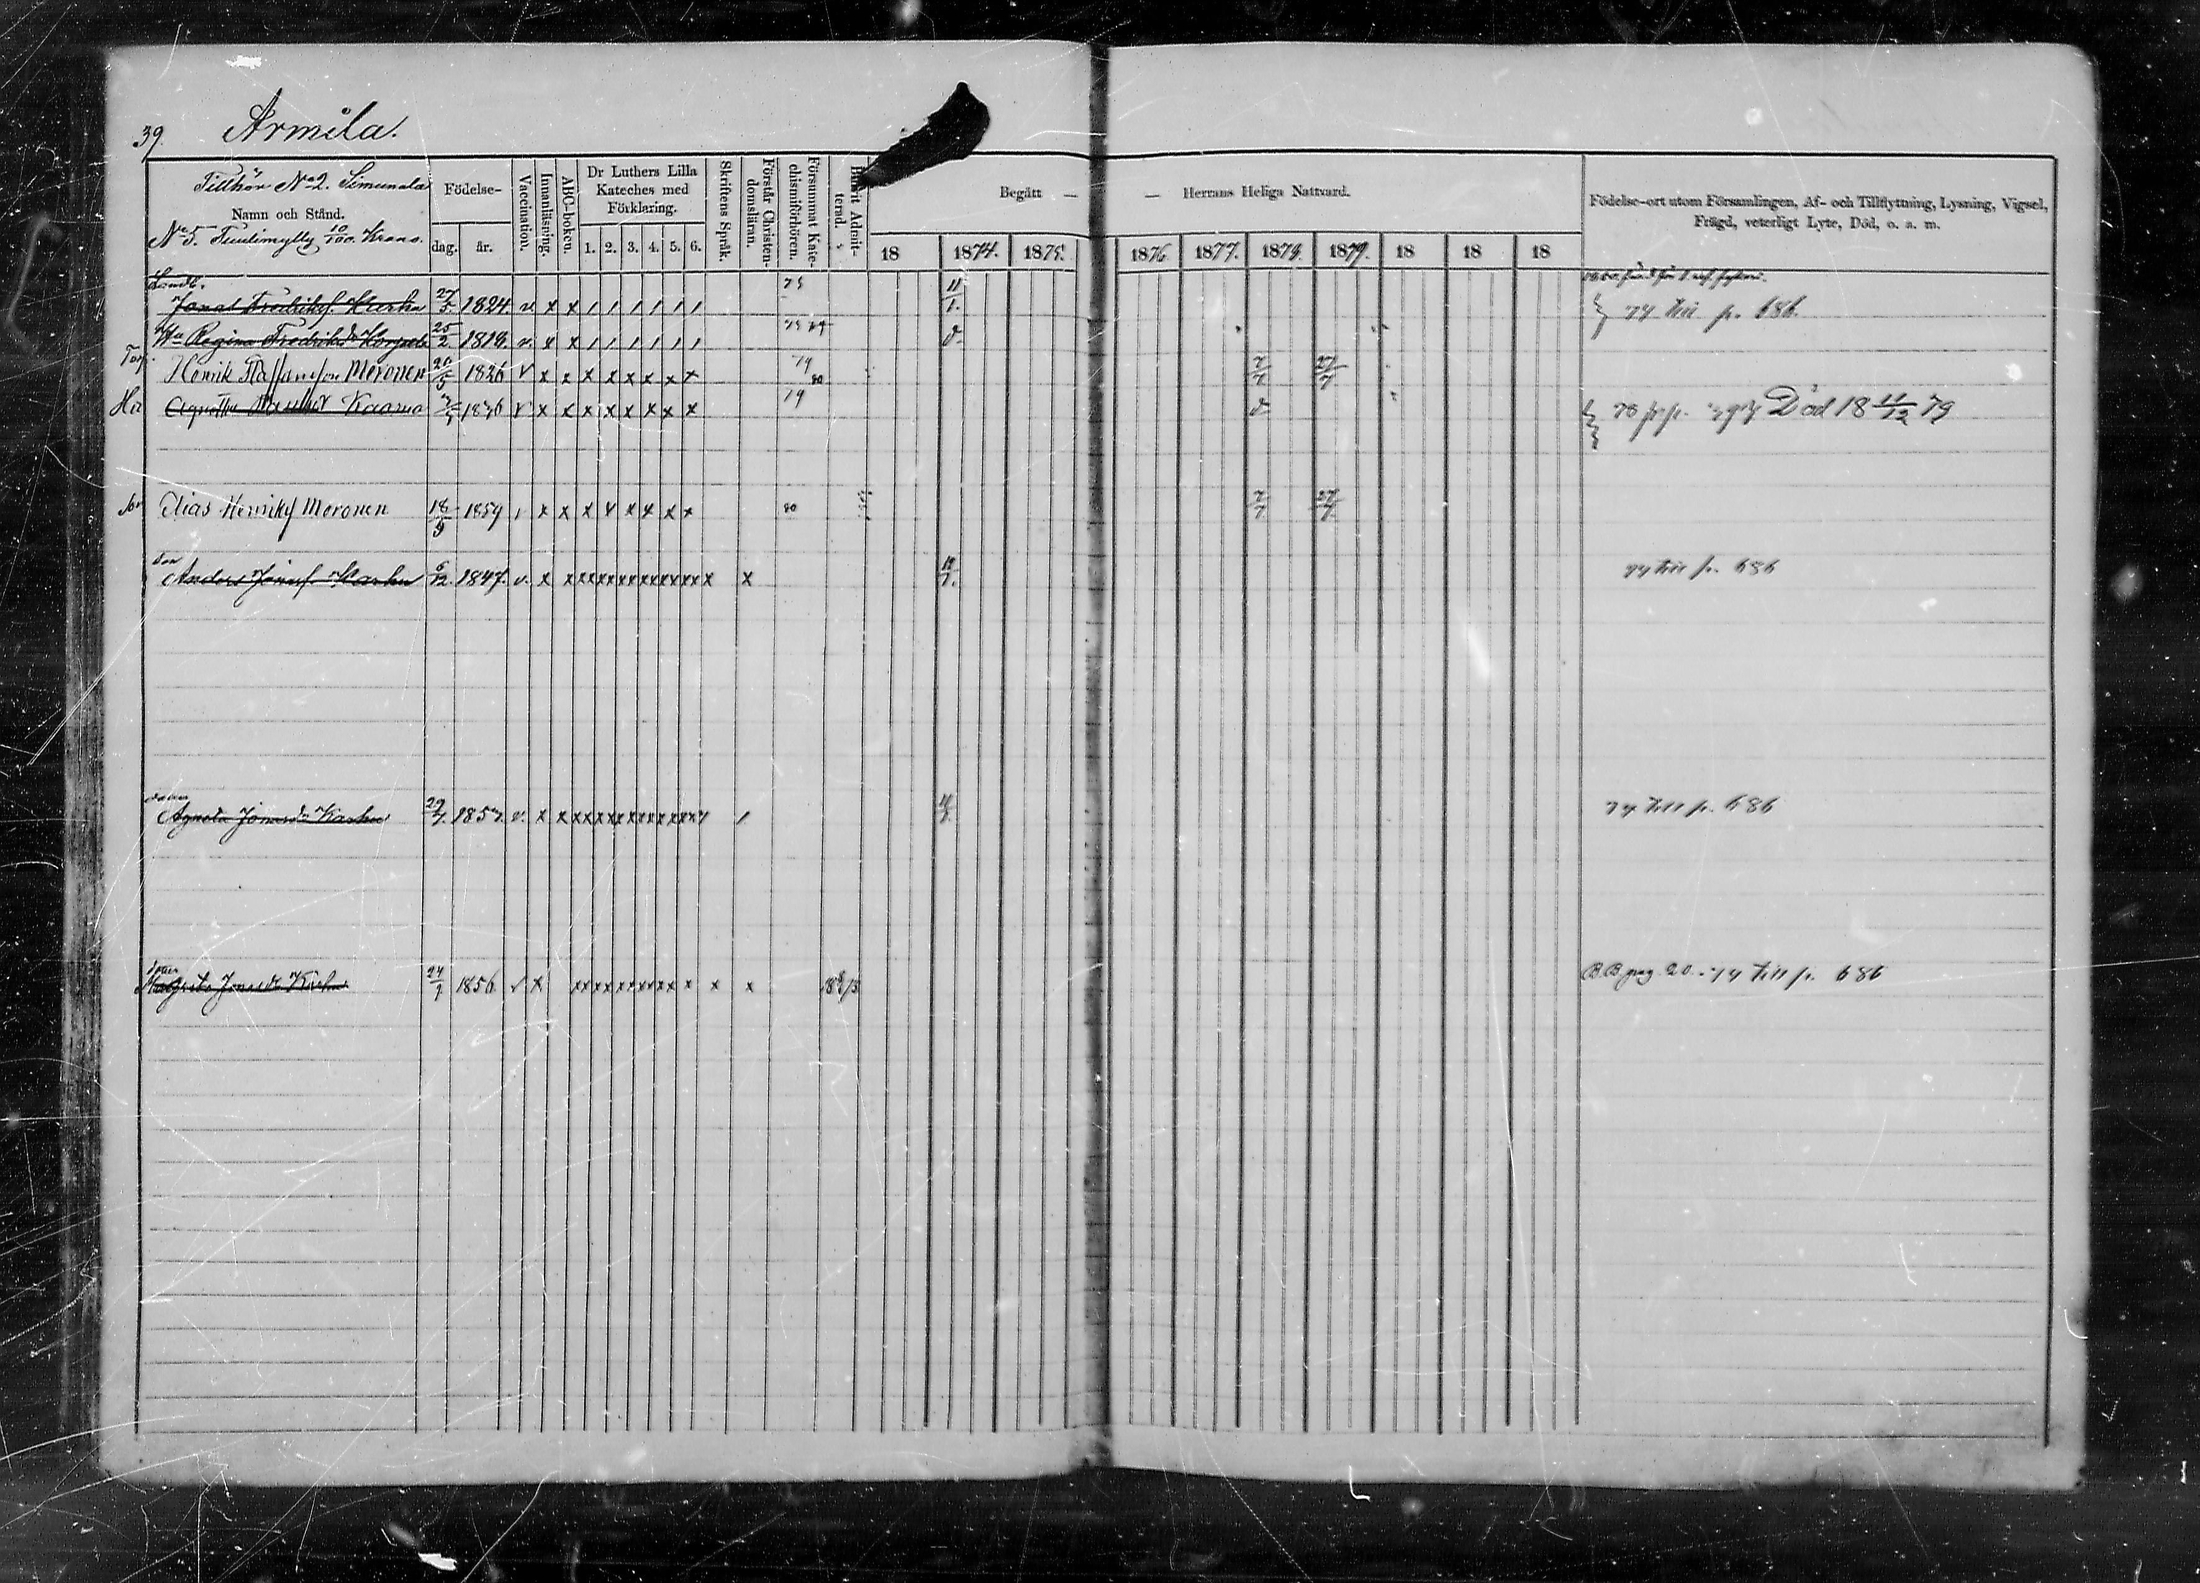 39. Armila.
Tillhör No 2. Simunala
Namn och Stånd.
No 5. Tuulimylly 10/100. Krono.
Födelse-
dag. år.
Vaccination.
Innanläsning.
ABC-boken.
Dr Luthers Lilla
Kateches med
Förklaring.
1. 2. 3. 4. 5. 6.
Skriftens Språk.
Förstår Christen-
domsläran.
Försummat Kate-
chismiförhören.
Blifvit Admit-
terad.
Begått — — Herrans Heliga Nattvard.
18 1874. 1875. 1876. 1877. 1878. 1879. 18 18 18
Födelse-ort utom Församlingen, Af- och Tillflyttning, Lysning, Vigsel,
Frägd, veterligt Lyte, Död, o. a. m.
Jonas Fredriks. Karhu 27/5. 1824. v. x x / / / / / / 75 11/1. 74 till p. 686.
Hu Regina Fredriksdr 25/2. 1818. v. x x / / / / / /
Henrik Moronen 1826 v x x x x x x x x 79 80 7/7 27/7
Hu Kaarna 1836 v x x x x x x x x 79 Död 18 11/12 79
Son Elias Henriks Moronen 18/9 1859 x x x x x x x x 80 7/7 27/7
Son
Anders Jonas. Karhu 6/12. 1847. v. x x xx xx xx xx xx xx x x 74 till p. 686
Agneta Jonasdr Karhu 29/7. 1857. v. x x xx xx xx xx xx / 74 till p. 686
Jonasdr Karhu 24/7 1856 v x xx xx xx xx xx x x x B.B. pag. 20. 74 till p. 686